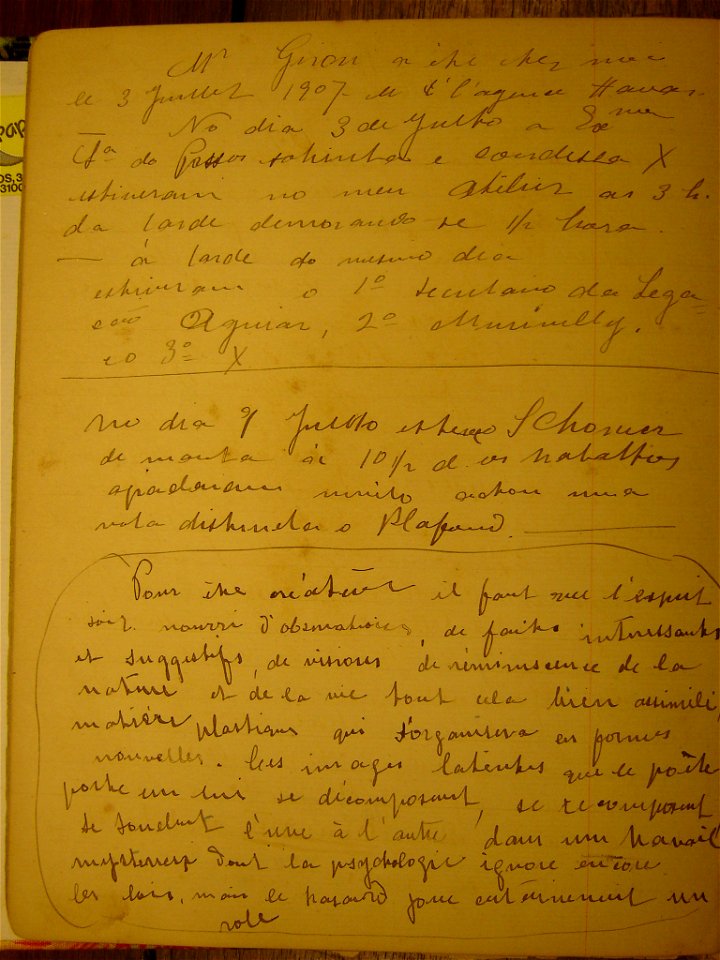 Mr Giron a ête chez moi
le 3 Juillet 1907 de l'agence Havas
No dia 3 de Julho a Exma
Sra do Passos sobrinha e condessa X
estiveram no meu atelier as 3 h.
da tarde demorando se 1/2 hora.
— á tarde do mesmo dia
estiveram o 1º secretario da Lega=
ção Aguiar, 2º
e o 3º X
No dia 9 Julho esteve
de manhã ás 10 1/2 d. os trabalhos
agradaram muito achou uma
nota distincta o Plafond.
Pour être créateur il faut que l'esprit
soit nourri d'observations, de faits interessants
et suggestifs, de visions de réminiscence de la
nature et de la vie tout cela bien assimilé,
matière plastique qui s'organisera en formes
nouvelles. Les images latentes que le poète
porte en lui se décomposent, se recomposent
se soudent l'une à l'autre dans un travail
mysterieux dont la psychologie ignore encore
les lois, mais le hasard joue certainement un
role